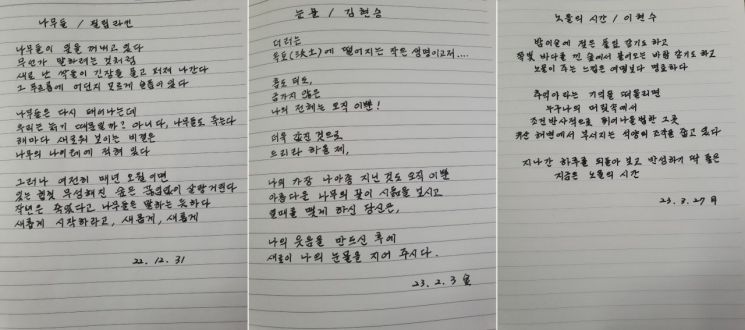 나무들 / 필립 라킨
나무들이 잎을 꺼내고 있다
무언가 말하려는 것처럼
새로 난 싹들이 긴장을 풀고 퍼져 나간다
그 푸르름에 어딘지 모르게 슬픔이 있다
나무들은 다시 태어나는데
우리는 늙기 때문일까? 아니다, 나무들도 죽는다
해마다 새로워 보이는 비결은
나무의 나이테에 적혀 있다
그러나 여전히 매년 오월이면
있는 힘껏 무성해진 숲은 끊임없이 살랑거린다
작년은 죽었다고 나무들은 말하는 듯하다
새롭게 시작하라고, 새롭게, 새롭게
22. 12. 31
눈물 / 김현승
더러는
옥토(沃土)에 떨어지는 작은 생명이고저....
흠도 티도,
금가지 않은
나의 전체는 오직 이뿐!
더욱 값진 것으로
드리라 하올 제,
나의 가장 나아종 지닌 것도 오직 이뿐
아름다운 나무의 꽃이 시듦을 보시고
열매를 맺게 하신 당신은,
나의 웃음을 만드신 후에
새로이 나의 눈물을 지어 주시다.
23. 2. 3 金
노을의 시간 / 이현수
밤이슬에 젖은 들길 같기도 하고
쪽빛 바다를 낀 숲에서 불어오는 바람 같기도 하고
노을이 주는 느낌은 어떨보다 명료하다
추억이라는 기억을 떠올리면
누구나의 머릿속에서
조건반사적으로 튀어나올 법한 그곳
해변에서 부서지는 석양의 조각을 줍고 있다
지나간 하루를 되돌아 보고 반성하기 딱 좋은
지금은 노을의 시간
23. 3. 27 月